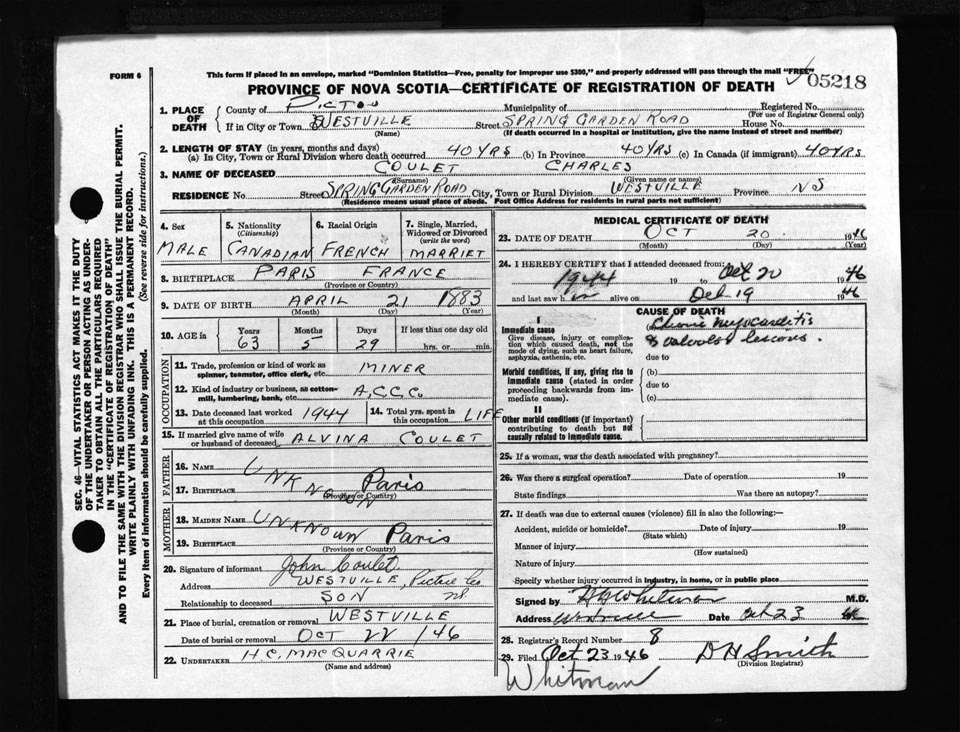 FORM 6
This form if placed in an envelope, marked "Dominion Statistics—Free, penalty for improper use $300," and properly addressed will pass through the mail "FREE"
05218
PROVINCE OF NOVA SCOTIA—CERTIFICATE OF REGISTRATION OF DEATH
1. PLACE OF DEATH
County of PICTOU Municipality of Registered No.
(For use of Registrar General only)
If in City or Town WESTVILLE Street SPRING GARDEN ROAD House No.
(Name) (If death occurred in a hospital or institution, give the name instead of street and number)
2. LENGTH OF STAY (in years, months and days)
(a) In City, Town or Rural Division where death occurred 40 YRS (b) In Province 40 YRS (c) In Canada (if immigrant) 40 YRS
3. NAME OF DECEASED COULET CHARLES
(Surname) (Given name or names)
RESIDENCE No. Street SPRING GARDEN ROAD City, Town or Rural Division WESTVILLE Province NS
(Residence means usual place of abode. Post Office Address for residents in rural parts not sufficient)
4. Sex
MALE
5. Nationality
(Citizenship)
CANADIAN
6. Racial Origin
FRENCH
7. Single, Married, Widowed or Divorced
(write the word)
MARRIET
8. BIRTHPLACE PARIS FRANCE
(Province or Country)
9. DATE OF BIRTH APRIL 21 1883
(Month) (Day) (Year)
10. AGE in
Years Months Days If less than one day old
63 5 29 hrs. or min.
OCCUPATION
11. Trade, profession or kind of work as spinner, teamster, office clerk, etc. MINER
12. Kind of industry or business, as cotton-mill, lumbering, bank, etc. A.C.C.Co
13. Date deceased last worked at this occupation 1944
14. Total yrs. spent in this occupation LIFE
15. If married give name of wife or husband of deceased ALVINA COULET
FATHER
16. NAME UNKNOWN
17. BIRTHPLACE Paris
(Province or Country)
MOTHER
18. MAIDEN NAME UNKNOWN
19. BIRTHPLACE Paris
(Province or Country)
20. Signature of informant John Coulet
Address WESTVILLE, Pictou Co NS
Relationship to deceased SON
21. Place of burial, cremation or removal WESTVILLE
Date of burial or removal OCT 22 / 46
22. UNDERTAKER H.C. MACQUARRIE
(Name and address)
MEDICAL CERTIFICATE OF DEATH
23. DATE OF DEATH OCT 20 1946
(Month) (Day) (Year)
24. I HEREBY CERTIFY that I attended deceased from:
1944 19 to Oct 20 1946
and last saw h im alive on Oct 19 1946
CAUSE OF DEATH
I
Immediate cause
Give disease, injury or complication which caused death, not the mode of dying, such as heart failure, asphyxia, asthenia, etc.
(a) Chronic myocarditis
& valvular lesions.
due to
Morbid conditions, if any, giving rise to immediate cause (stated in order proceeding backwards from immediate cause).
(b)
due to
(c)
II
Other morbid conditions (if important) contributing to death but not causally related to immediate cause.
25. If a woman, was the death associated with pregnancy?
26. Was there a surgical operation? Date of operation 19
State findings Was there an autopsy?
27. If death was due to external causes (violence) fill in also the following:—
Accident, suicide or homicide? Date of injury 19
(State which)
Manner of injury
(How sustained)
Nature of injury
Specify whether injury occurred in industry, in home, or in public place
Signed by Whitman M.D.
Address Westville Date Oct 23 46
28. Registrar's Record Number 8
29. Filed Oct 23 1946 D H Smith
(Division Registrar)
Whitman
SEC. 46—VITAL STATISTICS ACT MAKES IT THE DUTY
OF THE UNDERTAKER OR PERSON ACTING AS UNDER-
TAKER TO OBTAIN ALL THE PARTICULARS REQUIRED
IN THE "CERTIFICATE OF REGISTRATION OF DEATH"
AND TO FILE THE SAME WITH THE DIVISION REGISTRAR WHO SHALL ISSUE THE BURIAL PERMIT.
WRITE PLAINLY WITH UNFADING INK. THIS IS A PERMANENT RECORD.
Every item of information should be carefully supplied. (See reverse side for instructions.)